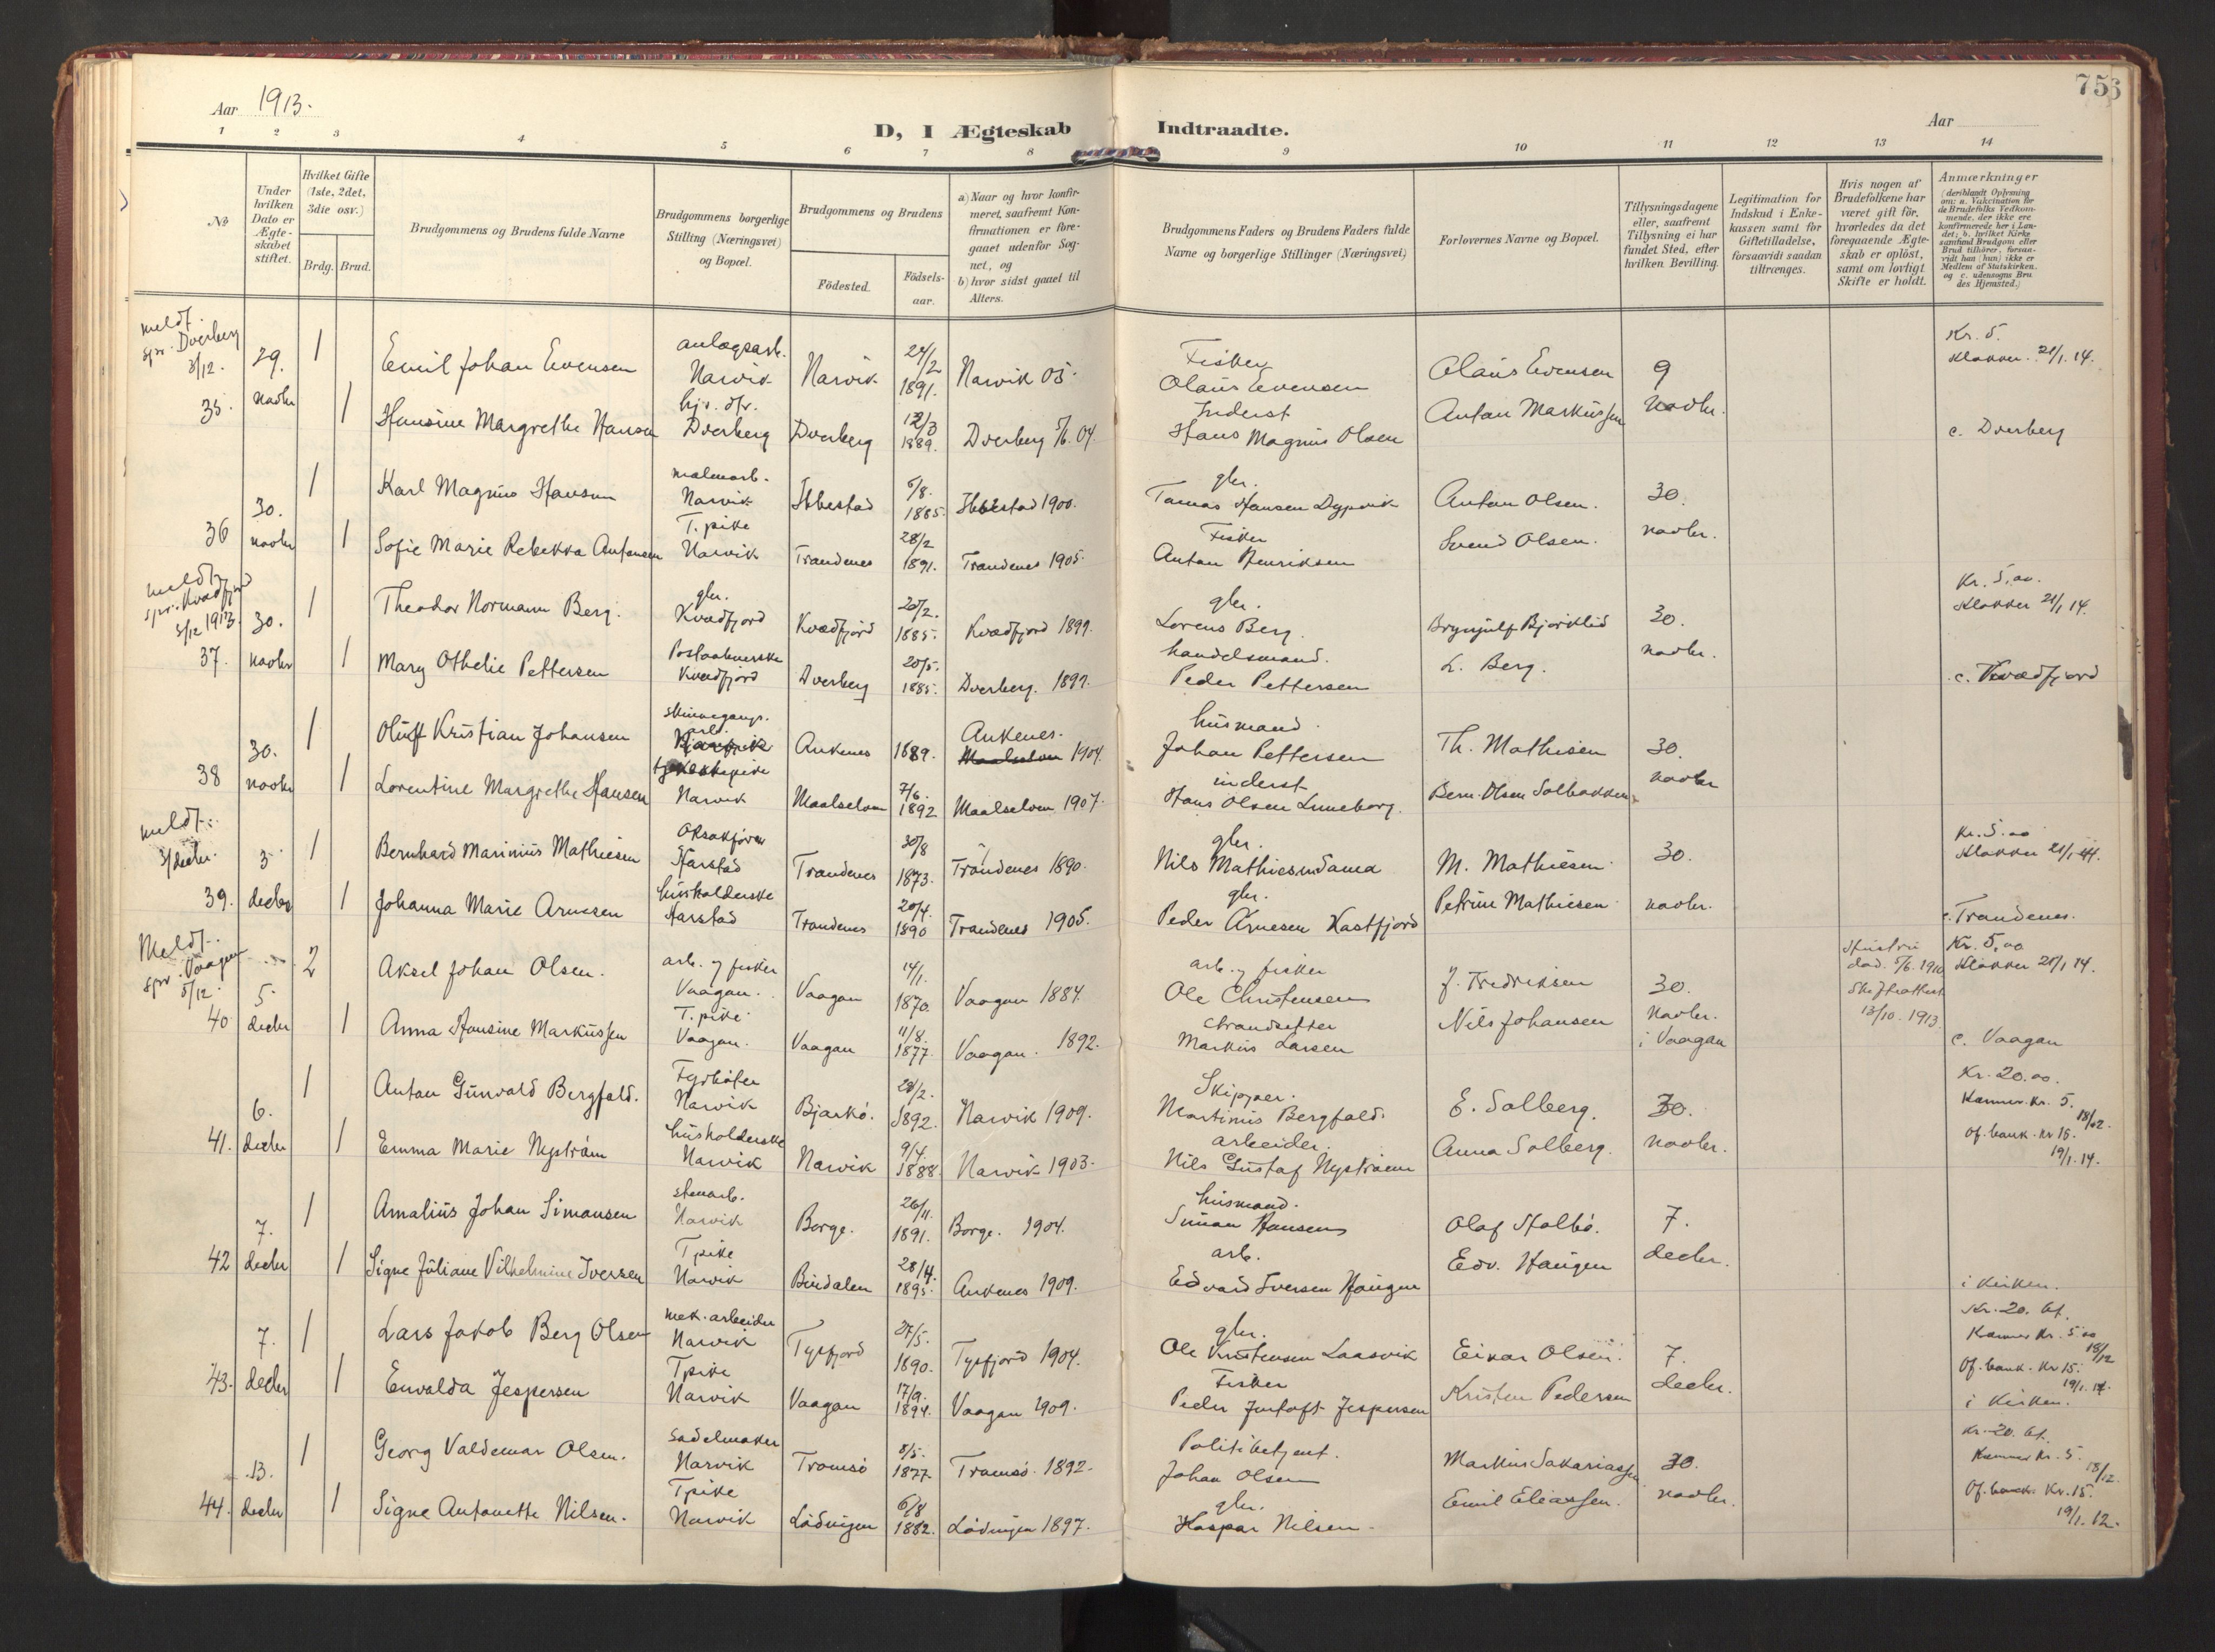 756
Aar 1913.
D, I Ægteskab Indtraadte.
Aar
1 2 3 4 5 6 7 8 9 10 11 12 13 14
№
Under hvilken Dato er Ægteskabet stiftet.
Hvilket Gifte (1ste, 2det, 3die osv.)
Brdg. Brud.
Brudgommens og Brudens fulde Navne
Brudgommens borgerlige Stilling (Næringsvei) og Bopæl.
Brudgommens og Brudens
Födested.
Födselsaar.
a) Naar og hvor konfirmeret, saafremt Konfirmationen er foregaaet udenfor Sognet, og
b) hvor sidst gaaet til Alters.
Brudgommens Faders og Brudens Faders fulde Navne og borgerlige Stillinger (Næringsvei)
Forlovernes Navne og Bopæl.
Tillysningsdagene eller, saafremt Tillysning ei har fundet Sted, efter hvilken Bevilling.
Legitimation for Indskud i Enkekassen samt for Giftetilladelse, forsaavidt saadan tiltrænges.
Hvis nogen af Brudefolkene har været gift för, hvorledes da det foregaaende Ægteskab er oplöst, samt om lovligt Skifte er holdt.
Anmærkninger
(deriblandt Oplysning om: a. Vakcination for de Brudefolks Vedkommende, der ikke ere konfirmerede her i Landet; b. hvilket Kirkesamfund Brudgom eller Brud tilhörer, forsaavidt han (hun) ikke er Medlem af Statskirken, og c. udensogns Brudes Hjemsted.)
meldt. spr. Dverberg 3/12.
35. 29. novbr
1 Emil Johan Evensen anlægsarb. Narvik Narvik 24/2 1891. Narvik 05. Fisker Olaus Evensen Olaus Evensen 9 Kr. 5. Klokker. 21/1. 14.
1 Hansine Margrethe Hansen Dverberg Dverberg 12/3 1889. Dverberg 5/6. 04. Inderst Hans Magnus Olsen Anton Markussen novbr. c. Dverberg
36 30. novbr
1 Karl Magnus Hansen malmarb. Narvik Ibbestad 6/8. 1885. Ibbestad 1900. gbr. Tomas Hansen Dypvik Anton Olsen. 30.
1 Sofie Marie Rebekka Antonsen T. pike Narvik Trondenes 28/2 1891. Trondenes 1905. Fisker Anton Henriksen Svend Olsen. novbr.
meldt spr. Kvædfjord 3/12 1913.
37. 30. novbr
1 Theodor Normann Berg. gbr. Kvædfjord Kvædfjord 20/2. 1885. Kvædfjord 1899. gbr. Lorens Berg. Brynjulf Bjorklid 30. Kr. 5,00. Klokker 21/1 14.
1 Mary Othelie Pettersen Postaabnerske Kvædfjord Dverberg 20/5. 1885. Dverberg. 1899. handelsmand. Peder Pettersen L. Berg. novbr. c. Kvædfjord
38 30. novbr
1 Oluff Kristian Johansen skinnegangs. arb. Ankenes 1889. Ankenes. Maalselven 1904. husmand. Johan Pettersen Th. Mathisen 30.
1 Lorentine Margrethe Hansen Narvik Maalselven 7/6. 1892 Maalselven 1907. inderst Hans Olsen Luneborg. Bern. Olsen Solbakken novbr
meldt. 3/decbr.
39. 3 decbr
1 Bernhard Marinius Mathiesen Harstad Trondenes 30/8 1873. Trondenes 1890. gbr. Nils Mathiesen Sama M. Mathiesen 30. Kr. 5.00 Klokker 21/1 14.
1 Johanna Marie Arnesen husholderske Harstad Trondenes 20/4. 1890 Trondenes 1905. gbr. Peder Arnesen Kastfjord Petrine Mathiesen novbr. c. Trondenes.
Meldt. spr. Vaagan 5/12.
40 5. decbr
2 Aksel Johan Olsen. arb. og fisker Vaagan. Vaagan 14/1. 1870. Vaagan 1884. arb. og fisker Ole Christensen J. Fredriksen 30. Hustru död. 5/6. 1910 Skifteattest 13/10. 1913. Kr. 5,00 Klokker 21/1 14.
1 Anna Hansine Markussen T. pike Vaagan. Vaagan 11/8. 1877. Vaagan. 1892. strandsitter Markus Larsen Nils Johansen Novbr. i Vaagan c. Vaagan
41. 6. decbr
1 Anton Gunvald Bergfald. Fyrböter Narvik Bjarkö. 28/2. 1892. Narvik 1909. Skipper. Martinus Bergfald. E. Solberg. 30. Kr. 20.00. Kamner. Kr. 5. 18/12.
1 Emma Marie Nyström husholderske Narvik Narvik 9/4. 1888. Narvik 1903. arbeider. Nils Gustaf Nystrøm Anna Solberg. novbr. Of. bank. Kr 15. 19/1. 14.
42 7. decbr
1 Amalius Johan Simonsen stenarb. Narvik Borge. 26/11. 1891. Borge. 1904. husmand. Simon Hansen Olaf Stolbö. 7.
1 Signe Juliane Vilhelmine Iversen T pike Narvik Bindalen 28/4. 1895. Ankenes 1909. arb. Edvard Iversen Haugen Edv. Haugen decbr. i kirken.
43. 7. decbr
1 Lars Jakob Berg Olsen mek. arbeider Narvik Tysfjord 27/5. 1890. Tysfjord 1904. gbr. Ole Kristensen Laasvik Einar Olsen. 7. Kr. 20. bt. Kamner Kr. 5 00 18/12
1 Envalda Jespersen T pike Narvik Vaagan 17/9. 1894. Vaagan 1909. Fisker Peder Jentoft Jespersen Kristen Pedersen decbr. Of. bank. Kr 15. 19/1. 14. i Kirken.
44. 13. decbr
1 Georg Valdemar Olsen. Sadelmaker Narvik Tromsö 8/5. 1877. Tromsö. 1892. Politibetjent. Johan Olsen Markus Sakariassen 30. Kr. 20. bt. Kamner Kr. 5. 18/12.
1 Signe Antonette Nilsen. T pike Narvik Lödingen 6/8 1882. Lödingen 1897. gbr. Kaspar Nilsen. Emil Eliassen. novbr. Of. bank. Kr. 15. 19/1. 12.